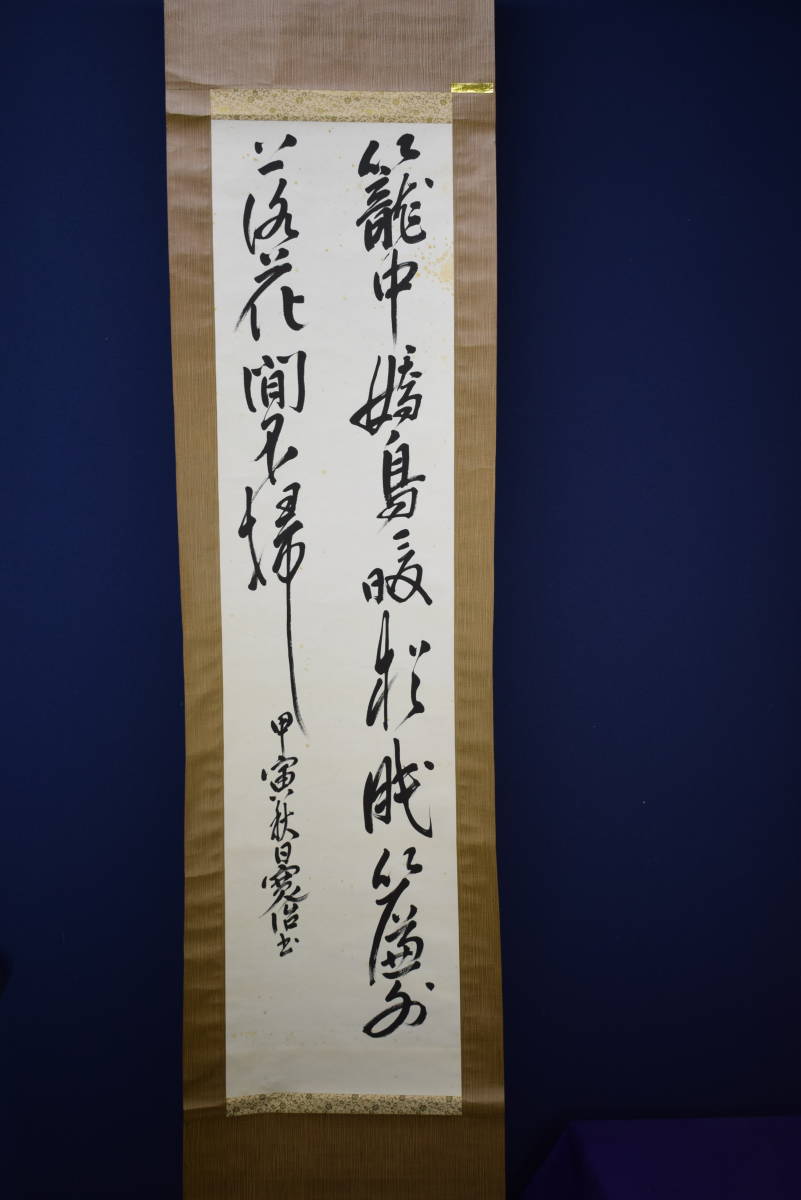 籠中嬌鳥暖猶眠簾外
落花閒不掃
甲寅秋日寛治書